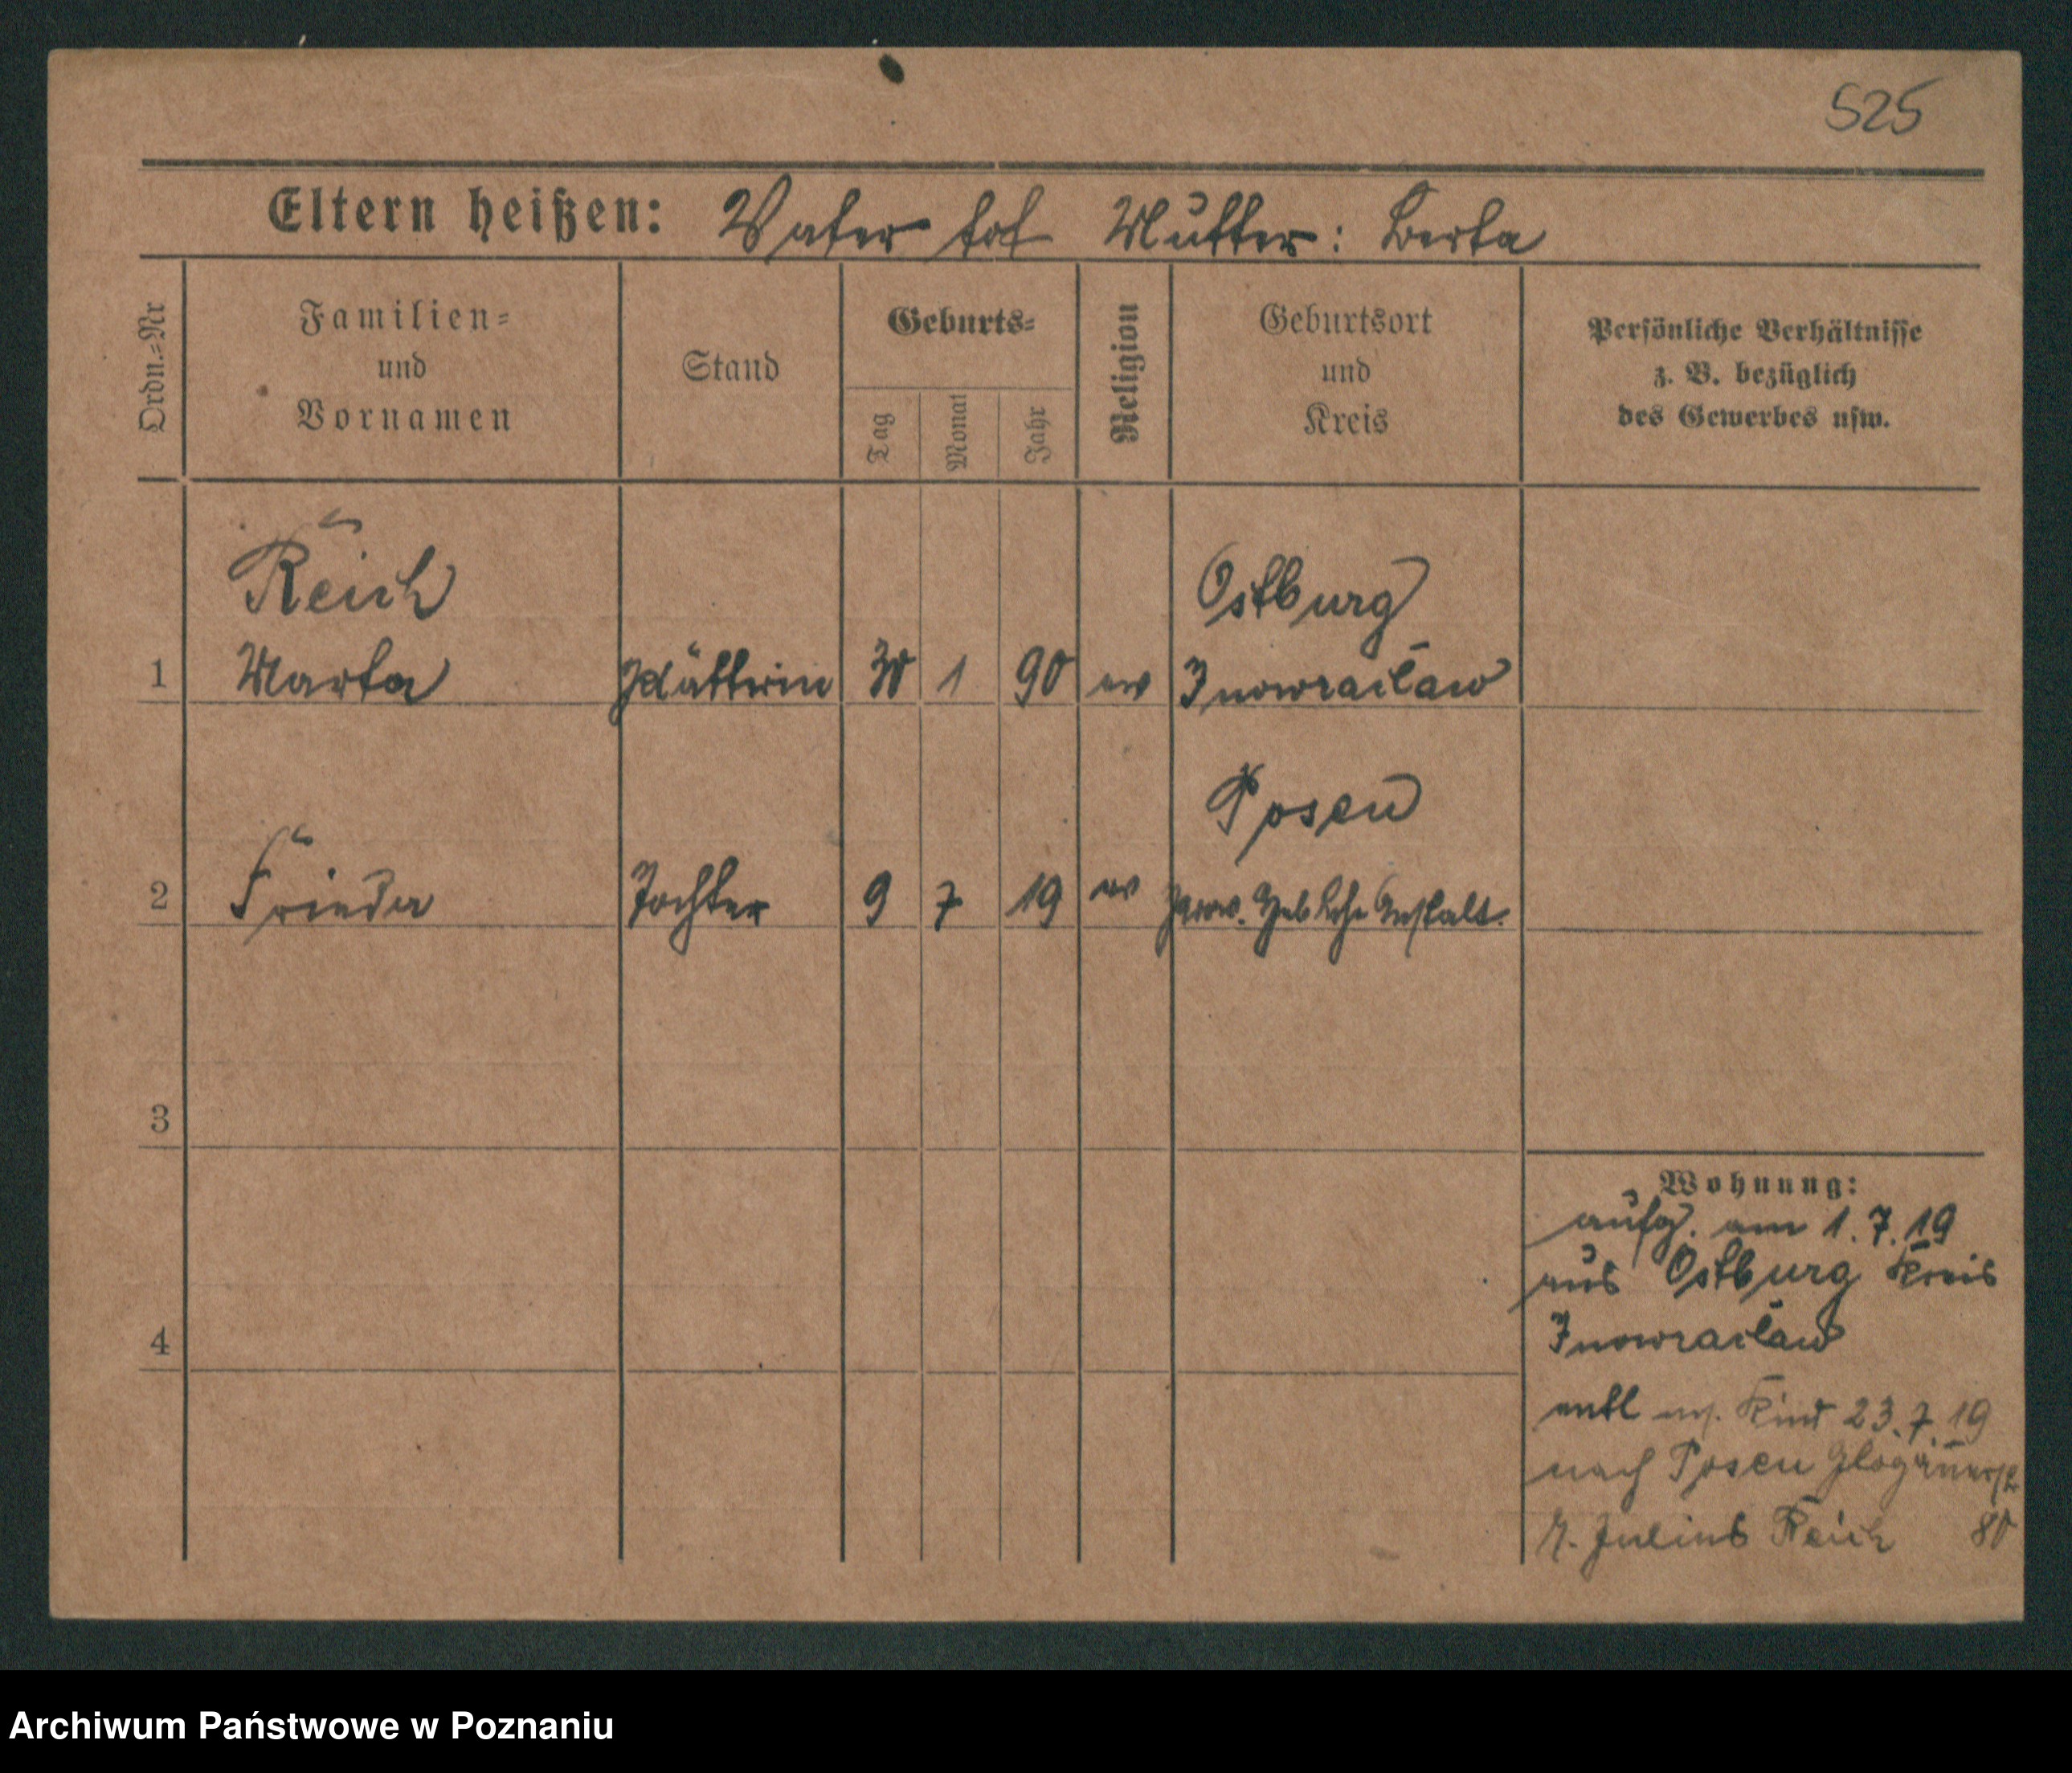 525
Eltern heißen: Vater tot Mutter: Berta
Ordn.=Nr
Familien=
und
Vornamen
Stand
Geburts=
Tag
Monat
Jahr
Religion
Geburtsort
und
Kreis
Persönliche Verhältnisse
z. B. bezüglich
des Gewerbes usw.
Reich Ostburg
1 Marta Plätterin 30 1 90 ev Inowrazlaw
Posen
2 Frieda Tochter 9 7 19 ev Prov. Anstalt.
3
4
Wohnung:
aufg. am 1.7.19
aus Ostburg Kreis
Inowrazlaw
entl m. Kind 23.7.19
nach Posen Glogauerst
Julius Reich 80
Archiwum Państwowe w Poznaniu